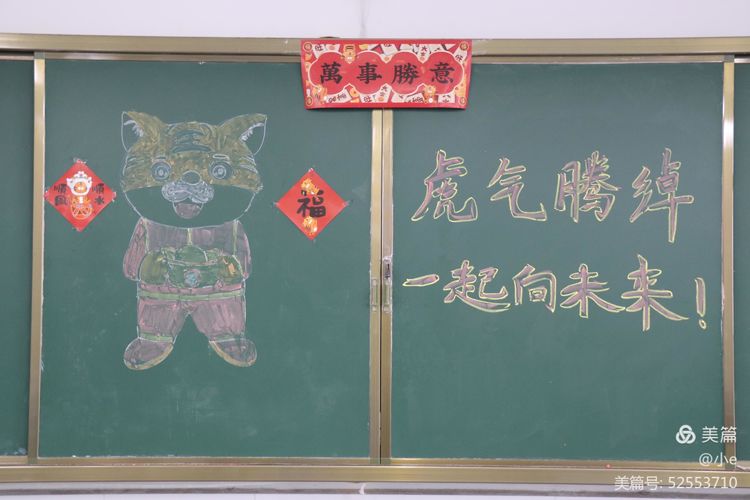 萬事勝意
順風
順水
福
虎气腾绰
一起向未来！
美篇
@小e
美篇号: 52553710